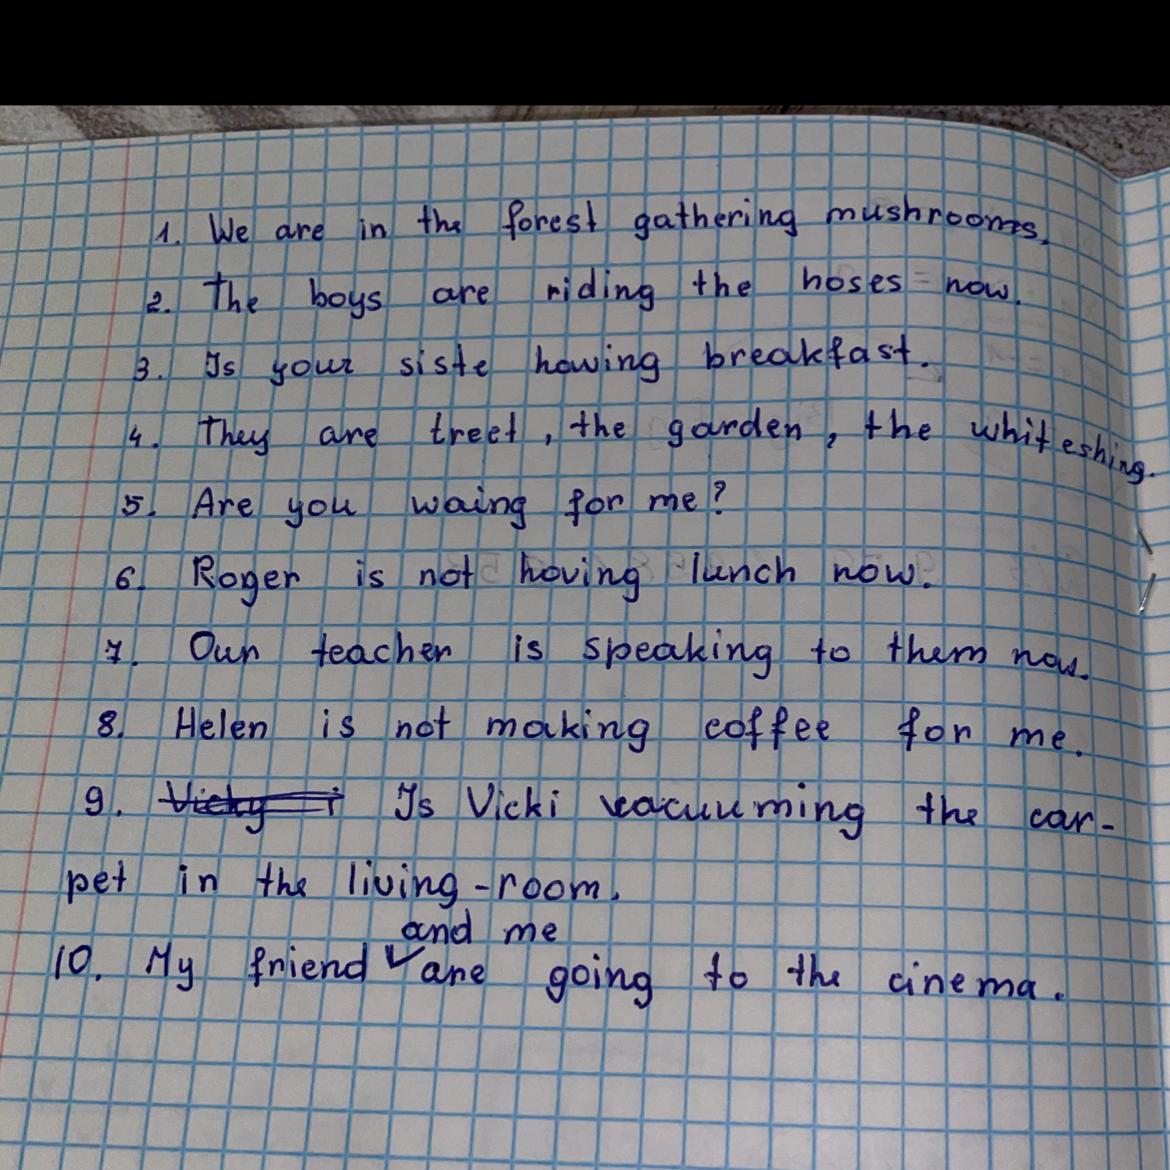 1. We are in the forest gathering mushrooms.
2. The boys are riding the hoses now.
3. Is your siste having breakfast.
4. They are treet, the garden, the whiteshing.
5. Are you waing for me?
6. Roger is not having lunch now.
7. Our teacher is speaking to them now.
8. Helen is not making coffee for me.
9. Is Vicki vacuuming the car-
pet in the living-room.
and me
10. My friend are going to the cinema.